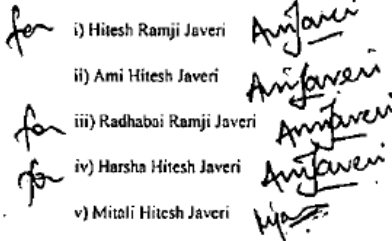 for i) Hitesh Ramji Javeri AmiJaveri
ii) Ami Hitesh Javeri AmiJaveri
for iii) Radhabai Ramji Javeri AmiJaveri
for iv) Harsha Hitesh Javeri AmiJaveri
v) Mitali Hitesh Javeri